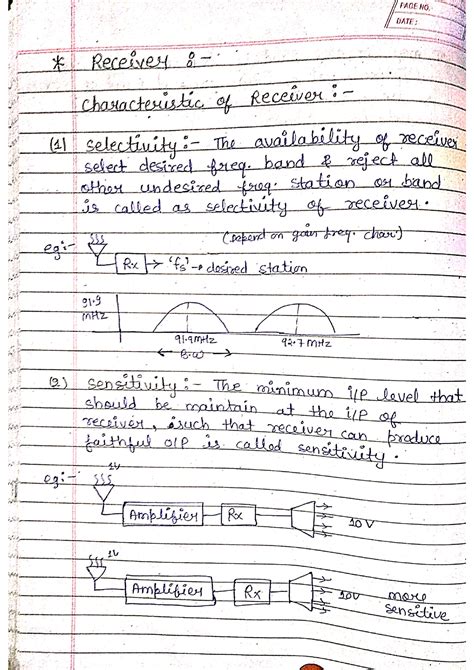 PAGE NO.
DATE:
* Receiver :-
Characteristic of Receiver :-
(1) Selectivity :- The availability of receiver
select desired freq. band & reject all
other undesired freq. station or band
is called as selectivity of receiver.
(Depend on gain freq. char.)
eg:-
Rx → 'fs' → desired station
91.9
MHz
91.9 MHz
92.7 MHz
B.W
(2) Sensitivity :- The minimum i/p level that
should be maintain at the i/p of
receiver, such that receiver can produce
faithful O/P is called sensitivity.
eg:-
1V
Amplifier
Rx
10V
1V
Amplifier
Rx
10V
more
sensitive